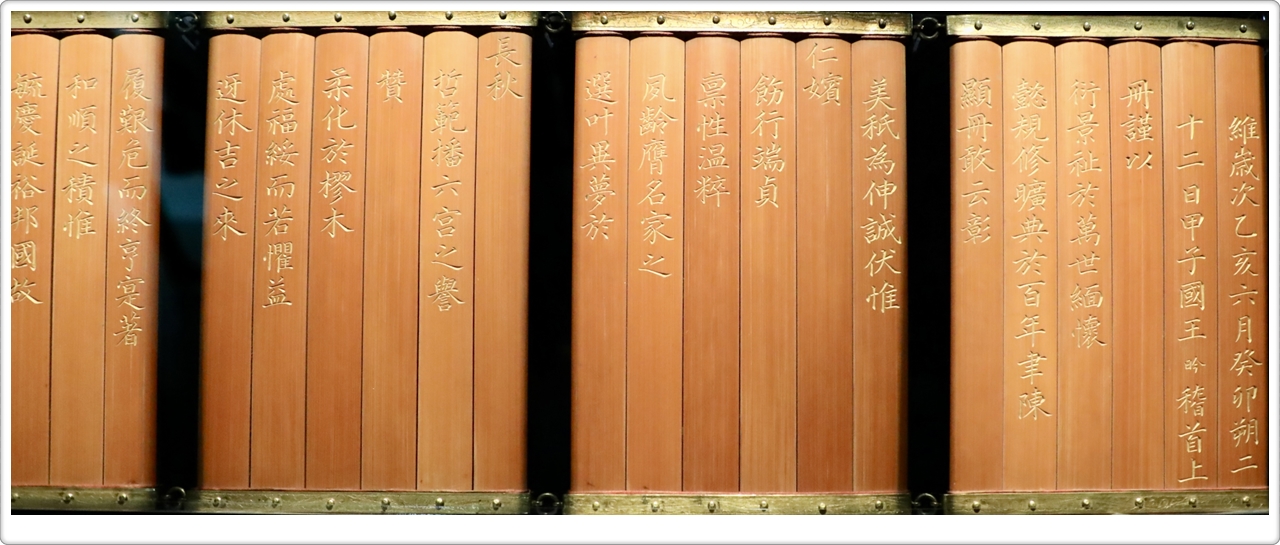 維歲次乙亥六月癸卯朔二
十二日甲子國王昑稽首上
冊謹以
衍景祉於萬世緬懷
懿規修曠典於百年聿陳
顯冊敢云彰
美秖為伸誠伏惟
仁嬪
飭行端貞
稟性温粹
夙齡膺名家之
選叶異夢於
長秋
哲範播六宮之譽
贊
柔化於樛木
處福綏而若懼益
迓休吉之來
履艱危而終亨寔著
和順之積惟
毓慶誕裕邦國故